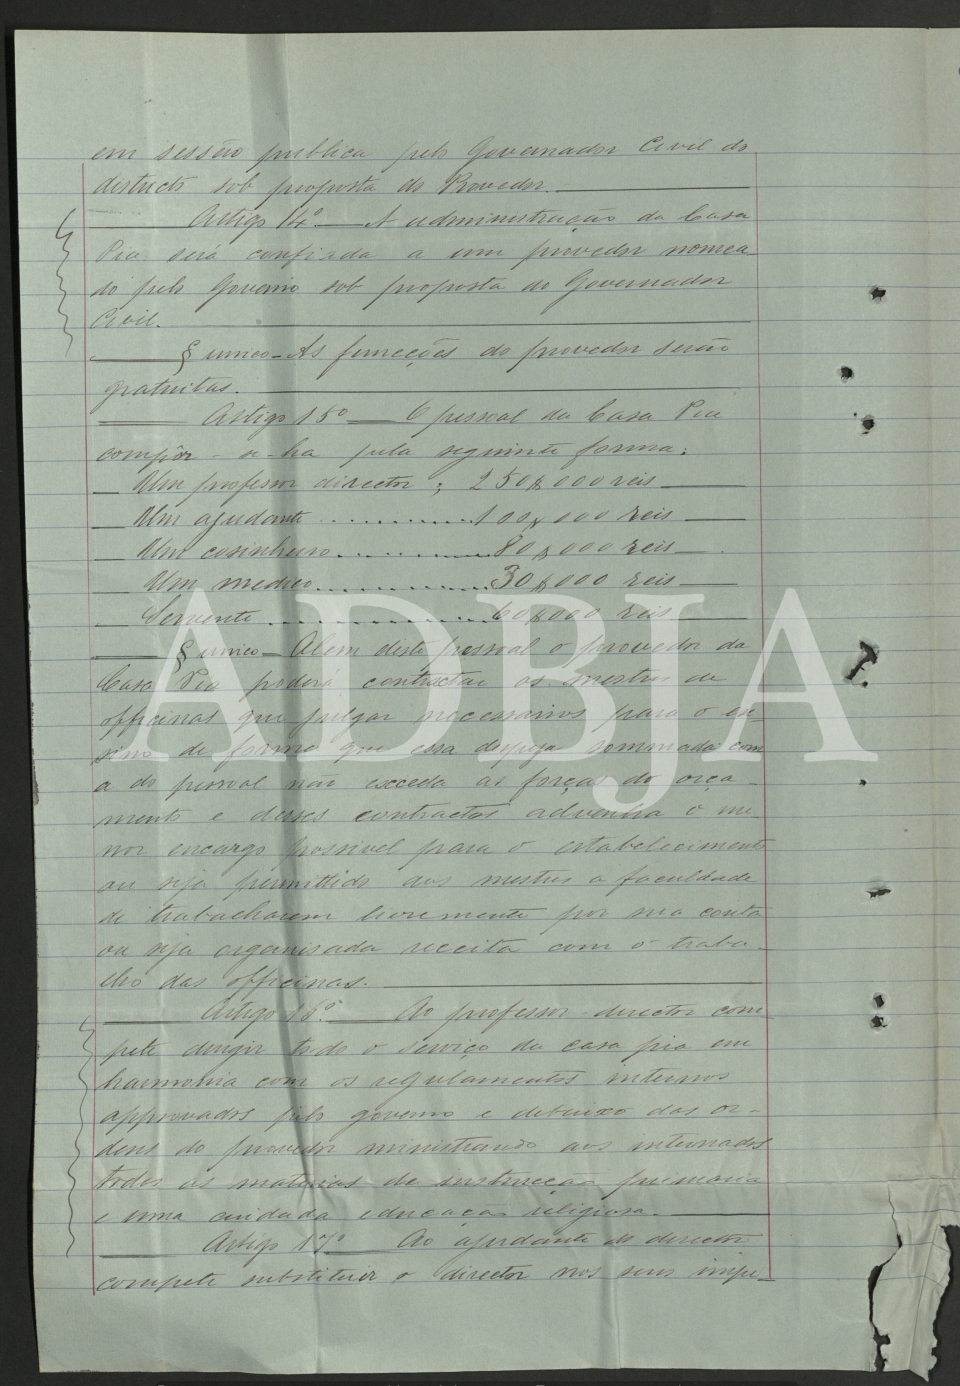 em sessão publica pelo Governador Civil do
districto sob proposta do Provedor.
Artigo 14º — A administração da Casa
Pia será confiada a um provedor nomea
do pelo Governo sob proposta do Governador
Civil.
§ unico — As funcções do provedor serão
gratuitas.
Artigo 15º — O pessoal da Casa Pia
compôr-se-ha pela seguinte forma:
Um professor director; 250$000 reis
Um ajudante ............ 100$000 reis
Um cosinheiro ............ 80$000 reis
Um medico ............ 30$000 reis
Servente ............ 60$000 reis
§ unico — Alem deste pessoal o provedor da
Casa Pia poderá contractar os mestres de
officinas que julgar necessarios para o en
sino de forma que essa despeza sommada com
a do pessoal não exceda as forças do orça-
mento e desses contractos advenha o me
nor encargo possivel para o estabelecimento
ou seja permittido aos mestres a faculdade
de trabalharem livremente por sua conta
ou seja organisada receita com o traba-
lho das officinas.
Artigo 16º — Ao professor-director com
pete dirigir todo o serviço da casa pia em
harmonia com os regulamentos internos
approvados pelo governo e debaixo das or-
dens do provedor ministrando aos internados
todas as materias de instrucção primaria
e uma cuidada educação religiosa.
Artigo 17º — Ao ajudante do director
compete substituir o director nos seus impe-
ADBJA